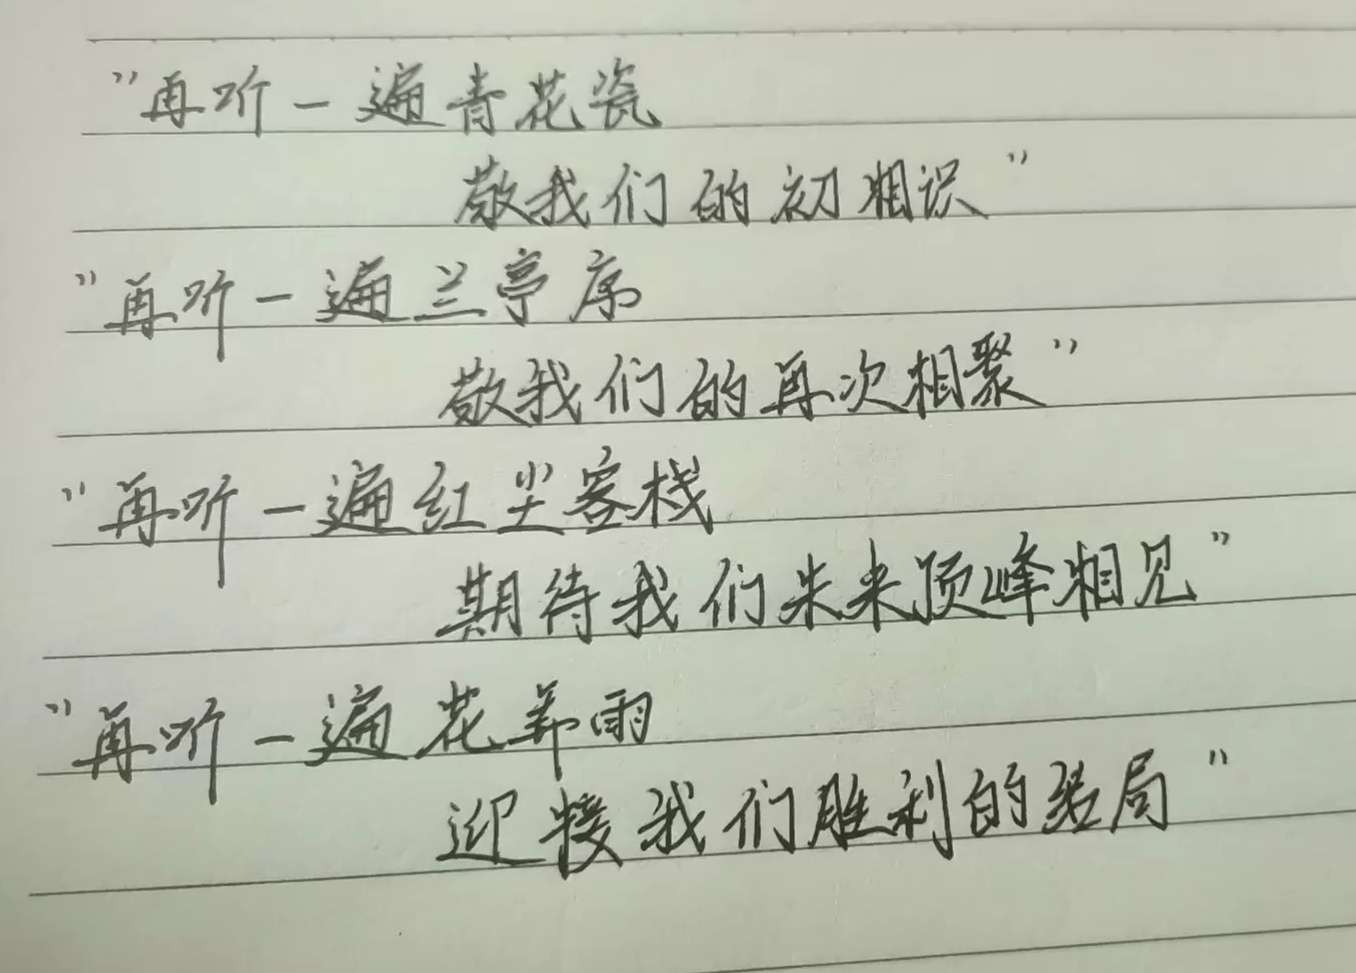 "再听一遍青花瓷
敬我们的初相识"
"再听一遍兰亭序
敬我们的再次相聚"
"再听一遍红尘客栈
期待我们未来顶峰相见"
"再听一遍花葬雨
迎接我们胜利的结局"